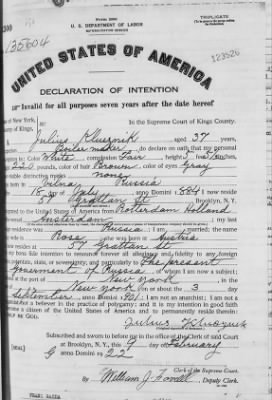 Form 2203
TRIPLICATE
U. S. DEPARTMENT OF LABOR
NATURALIZATION SERVICE
135604
123526
UNITED STATES OF AMERICA
DECLARATION OF INTENTION
Invalid for all purposes seven years after the date hereof
of New York,
In the Supreme Court of Kings County.
of Kings.
aged 37 years,
Boiler maker, do declare on oath that my personal
is: Color White, complexion Fair, height 5 feet inches,
pounds, color of hair Brown, color of eyes Gray
distinctive marks none
Vilna Russia
18 day of July, anno Domini 1884; I now reside
57 Grattan St Brooklyn, N. Y.
to the United States of America from Rotterdam Holland
Amsterdam; my last
residence was Russia; I am married; the name
is Rose; was born in Austria
reside at 57 Grattan St
fide intention to renounce forever all allegiance and fidelity to any foreign
state, or sovereignty, and particularly to The present
Government of Russia, of whom I am now a subject;
at the port of New York, in the
New York, on or about the 3 day
September, anno Domini 1901; I am not an anarchist; I am not a
nor a believer in the practice of polygamy; and it is my intention in good faith
a citizen of the United States of America and to permanently reside therein:
HELP ME GOD.
Subscribed and sworn to before me in the office of the Clerk of said Court
at Brooklyn, N. Y., this 9 day of February
anno Domini 1922
[SEAL]
Clerk of the Supreme Court.
By William J. , Deputy Clerk.